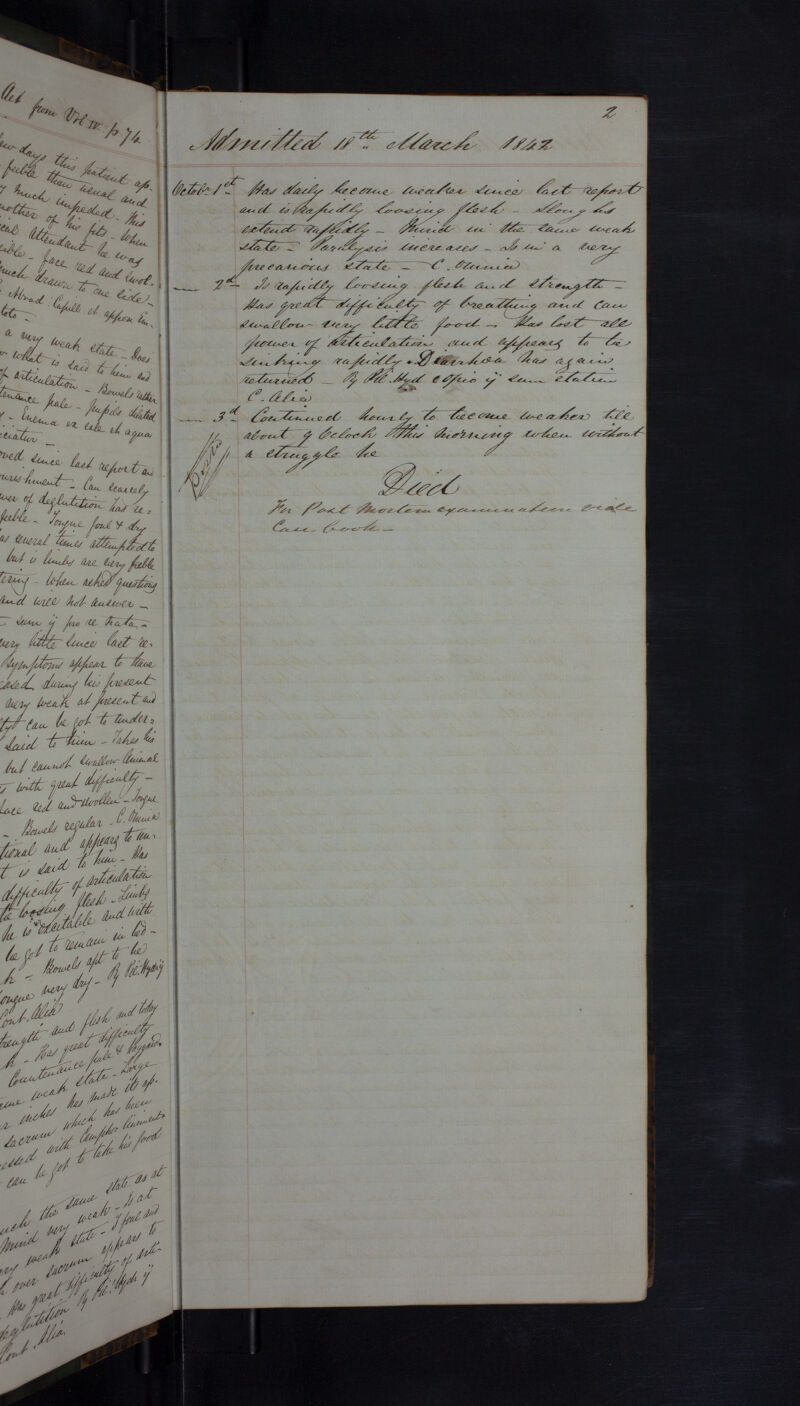 act from Vol IV p 74
few days this patient ap-
feeble than usual and
much impeded. His
another of his fits. When
attendant he was
face red and swol-
much drawn to one side-
Abrad Capill et appon Em-
a very weak state - Does
what is said to him and
of articulation - Bowels rather
pale - pupils dilated
- Enema ex sale et aqua
since last report and
nourishment - Can scarcely
power of deglutition has re-
feeble - Tongue foul & dry
has several times attempted to
but is limbs are very feeble
When asked questions
and will not answer -
sum ij pro re nata -
very little since last re-
Symptoms appear to have
during his present
very weak at present and
can be got to under-
said to him - Takes his
but cannot swallow Animal
with great difficulty -
face red and swollen - Tongue
- Bowels regular - C. Omnia
and appears to un-
is said to him - Has
difficulty of articulation
loosing flesh - Limbs
he is excitable and with
be got to remain in bed -
- Bowels apt to be
Tongue very dry - Rx Pil: Hyd ij
Cont. Alia
strength and flesh and today
- Has great difficulty
Countenance pale & haggard
same weak state - Large
inches has made its ap-
sacrum which has been
dressed with Camphor liniment
can be got to take his food
much the same state as at
Mind very weak - Is at
very weak state - T foul and
over sacrum appears to
Has great difficulty of arti-
deglutition Rx Pil: Hyd: ij
Cont. Alia.
2
Admitted 18th March 1842
Octobr 1st Has daily become weaker since last report
and is rapidly loosing flesh - Sloughs
extend rapidly - Mind in the same weak
state - Paralysis increases - Is in a very
precarious state - C. Omnia
— 2d Is rapidly loosing flesh and strength -
Has great difficulty of breathing and can
swallow very little food - Has lost all
power of articulation and appears to be
sinking rapidly. Diarrhoea has again
returned - Rx Pil: Hyd c opio ij sum statim
C. Alia
— 3d Continued hourly to become weaker till
about 9 Oclock this morning when without
a struggle he
Died
For Post Mortem examination vide
Case book -